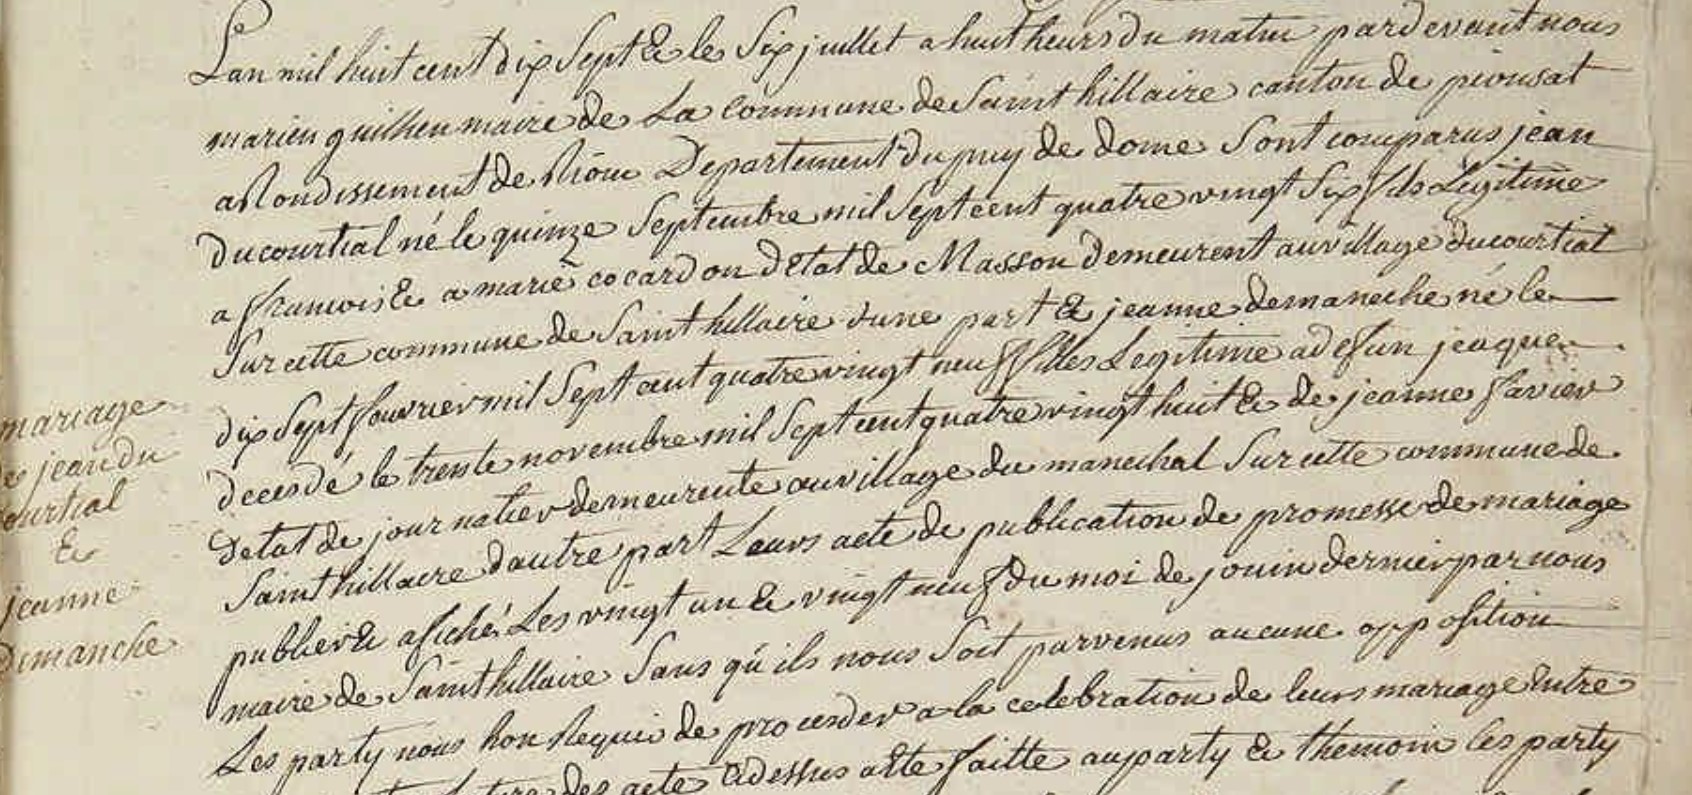 Lan mil huit cent dix Sept & le Six juillet a huit heurs du matin pardevant nous
marien guilhen maire de La Commune de Saint hillaire canton de pionsat
aRondissement de Riom Departement du puy de dome Sont comparus jean
Ducourtial né le quinze Septembre mil Sept cent quatre vingt Six fils Legitime
a francois & a marie cocardon détat de Masson demeurent au village ducourtial
Sur cette commune de Saint hillaire dune part & jeanne demaneche né le
dix Sept fauvrier mil Sept cent quatre vingt neuf filles Legitime a defun jaque
decesdé le trente novembre mil Sept cent quatre vingt huit & de jeanne favier
detat de journalier demeurente au village du marechal Sur cette commune de
Saint hillaire dautre part Leurs acte de publication de promesse de mariage
publier & afiché Les vingt un & vingt neuf du moi de jouin dernier par nous
maire de Saint hillaire Sans qu'ils nous Soit parvenus aucune opposition
Les party nous hon Requis de proceder a la celebration de leurs mariage Entre
des acte Cidessus faitte au party & themoin les party
mariage
de jean du
courtial
&
jeanne
Dimanche